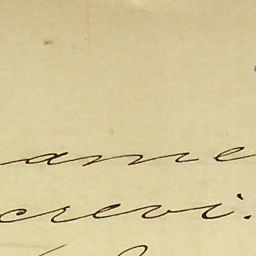 ame
crevi.